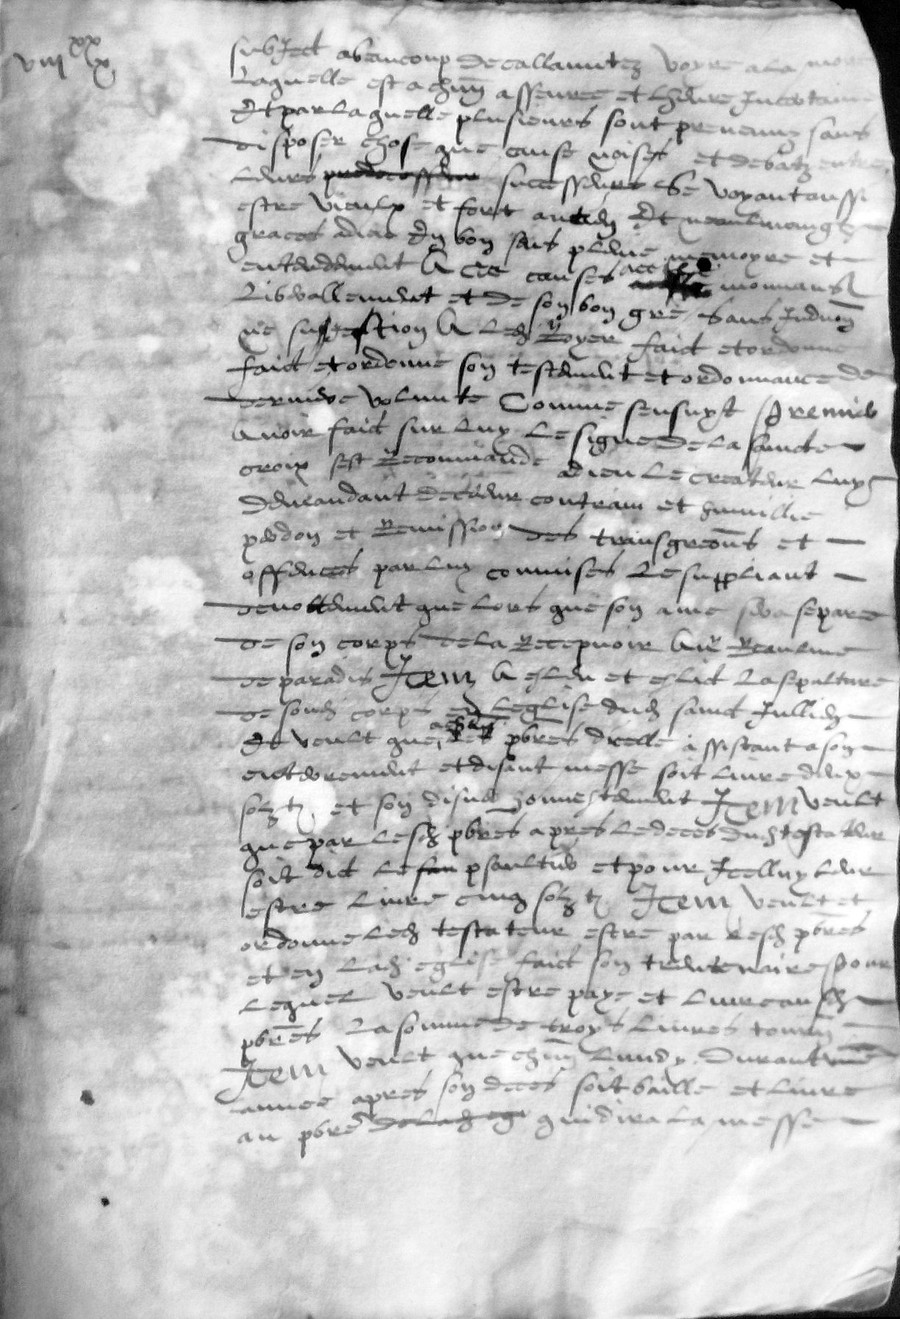 viii xx x
subject a beaucoup de callamitez voyre a la mort
laquelle est a chun asseuree et lheure incertaine
Et par laquelle plusieurs sont prevenuz sans
disposer chose que cause noises et debatz entre
leurs predecesseurs successeurs Se voyant aussi
estre vieulx et fort antien Et neaulmoings
graces a dieu En bon sens pleine memoyre et
entendement A ces causes mouvans
liberallement et de son bon gre sans induction
ne suggestion A led Royer faict et ordonne
faict et ordonne son testement et ordonnance de
derniere volunte Comme sensuyt Premier
Avoir faict sur luy le signe de la saincte
croix sest Recommande a dieu le createur luy
demandant de cueur contraict et humillie
perdon et Remission des transgreons et
offences par luy commises le suppliant
devottement que lors que son ame sera separee
de son corps de la Recepvoir Au Reaulme
de paradis Item A esleu et eslict la sepulture
de sond corps en leglise dud sainct Jullien
Et veult que a chun pbres dicelle assistant a son
enterrement et disant messe soit livre deux
solz tz et son disner honnestement Item veult
que par lesd pbres apres le deces dud testateur
soit dict le psaultier et pour Icelluy leur
estre livre cinq solz tz Item veult et
ordonne led testateur estre par lesd pbres
et en lad eglise faict son trentenaire Pour
lequel veult estre paye et livre ausd
pbres la somme de troys livres tourn
Item veult que chun lundy durant une
annee apres son deces soit baille et livre
au pbre de lad qui dira la messe